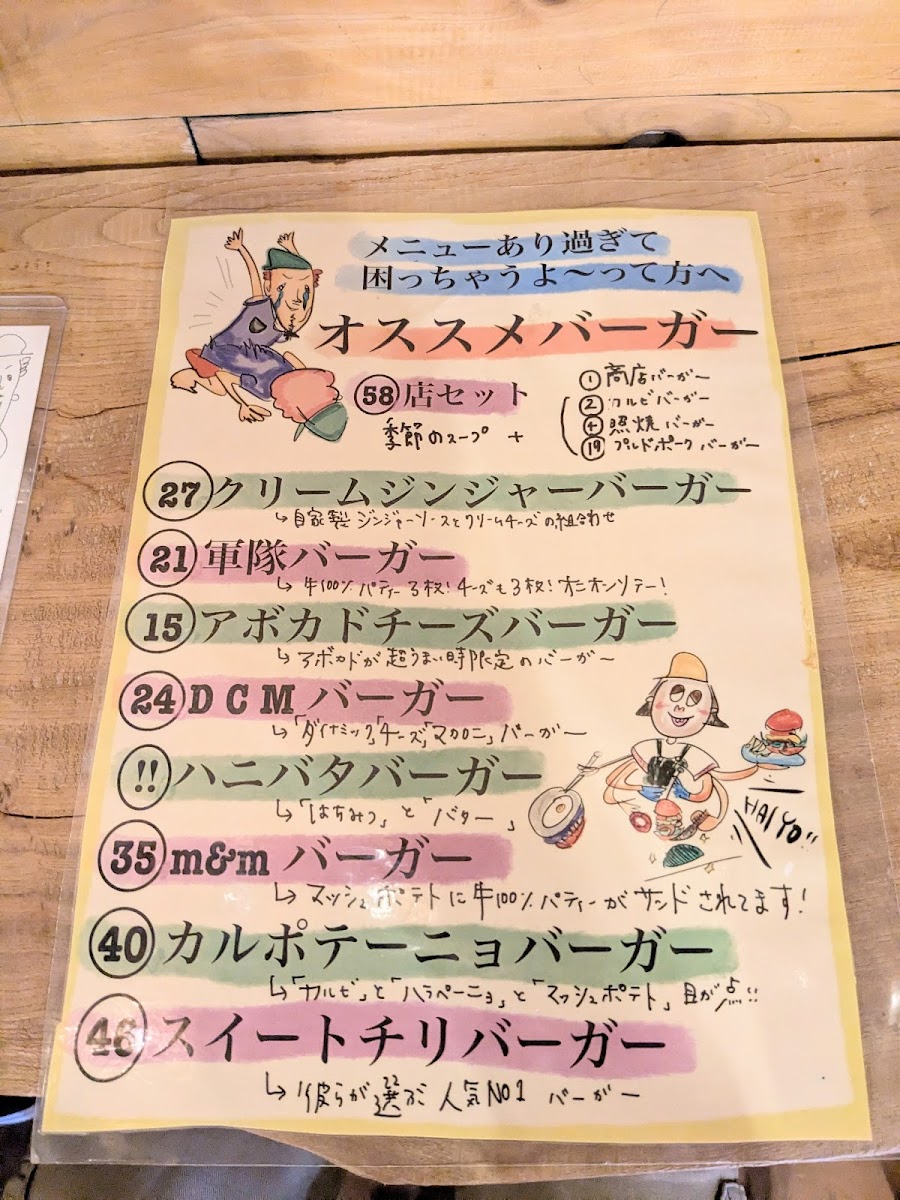 メニューあり過ぎて
困っちゃうよ〜って方へ
オススメバーガー
58 店セット
季節のスープ +
① 商店バーガー
② カルビバーガー
④ 照焼バーガー
⑲ プルドポークバーガー
27 クリームジンジャーバーガー
↳ 自家製ジンジャーソースとクリームチーズの組合わせ
21 軍隊バーガー
↳ 牛100%パティー3枚!チーズも3枚!オニオンソテー!
15 アボカドチーズバーガー
↳ アボカドが超うまい時限定のバーガー
24 DCMバーガー
↳「ダイナミック」「チーズ」「マカロニ」バーガー
!! ハニバタバーガー
↳「はちみつ」と「バター」
HAIYO!!
35 m&m バーガー
↳ マッシュポテトに牛100%パティーがサンドされてます!
40 カルポテーニョバーガー
↳「カルビ」と「ハラペーニョ」と「マッシュポテト」目が点!!
46 スイートチリバーガー
↳ 彼らが選ぶ人気NO1 バーガー